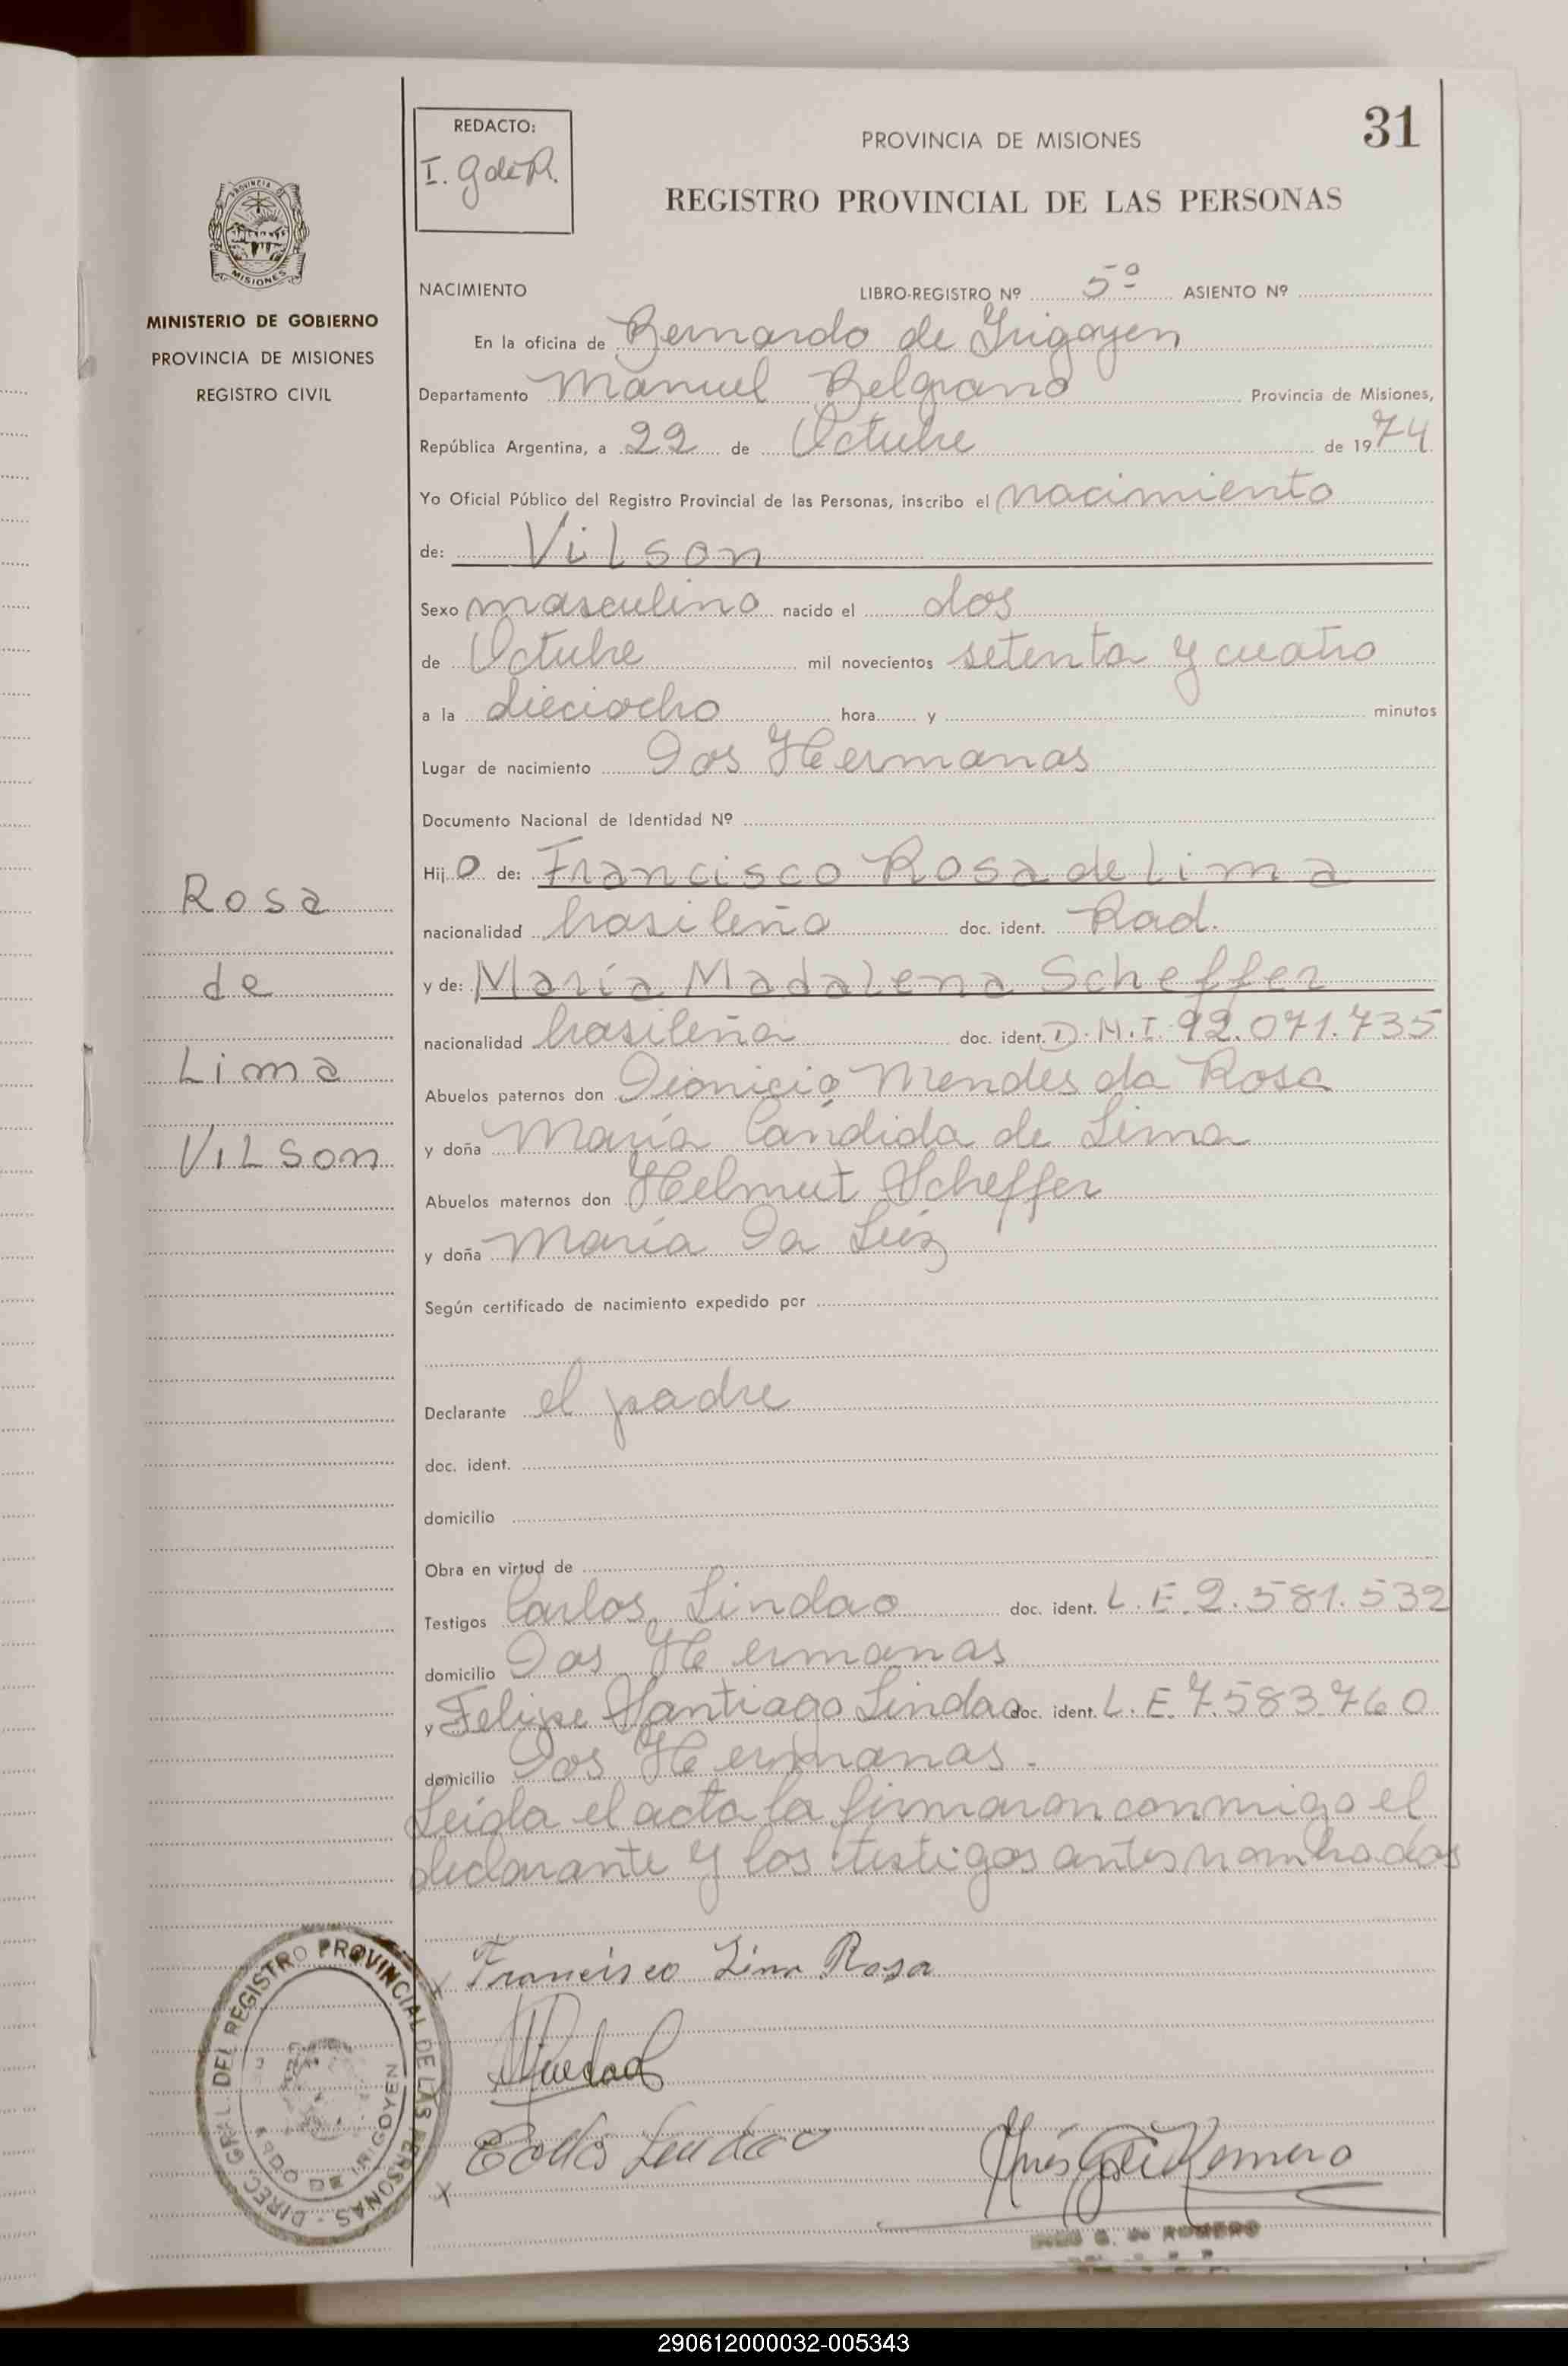 31
REDACTO:
I. G de R.
PROVINCIA DE MISIONES
REGISTRO PROVINCIAL DE LAS PERSONAS
PROVINCIA DE
MISIONES
MINISTERIO DE GOBIERNO
PROVINCIA DE MISIONES
REGISTRO CIVIL
NACIMIENTO LIBRO-REGISTRO Nº 5º ASIENTO Nº
En la oficina de Bernardo de Irigoyen
Departamento Manuel Belgrano Provincia de Misiones,
República Argentina, a 22 de Octubre de 1974
Yo Oficial Público del Registro Provincial de las Personas, inscribo el nacimiento
de: Vilson
Sexo masculino nacido el dos
de Octubre mil novecientos setenta y cuatro
a la dieciocho hora y minutos
Lugar de nacimiento Dos Hermanas
Documento Nacional de Identidad Nº
Hijo de: Francisco Rosa de Lima
nacionalidad brasileña doc. ident. Rad.
y de: María Madalena Scheffer
nacionalidad brasileña doc. ident. D.N.I. 92.071.735
Abuelos paternos don Dionicio Mendes da Rosa
y doña María Candida de Lima
Abuelos maternos don Helmut Scheffer
y doña María Da Luz
Según certificado de nacimiento expedido por
Declarante el padre
doc. ident.
domicilio
Obra en virtud de
Testigos Carlos Lindao doc. ident. L.E. 2.581.532
domicilio Dos Hermanas
y Felipe Santiago Lindao doc. ident. L.E. 7.583.760
domicilio Dos Hermanas.-
Leída el acta la firmaron conmigo el
declarante y los testigos antes nombrados
Rosa
de
Lima
Vilson
Francisco Lima Rosa
Carlos Lindao
Inés G de Romero
INES G. de ROMERO
DIREC. GRAL. DEL REGISTRO PROVINCIAL DE LAS PERSONAS
BDO DE IRIGOYEN
290612000032-005343